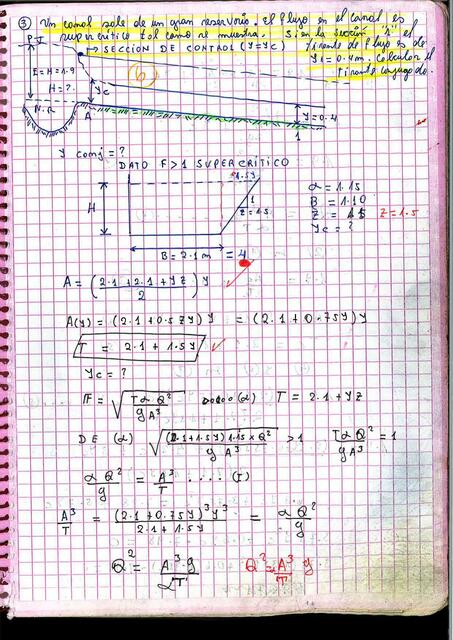 ③ Un canal sale de un gran reservorio. El flujo en el canal es
supercrítico tal como se muestra. Si en la sección "1" el
tirante de flujo es de
y1 = 0.4m. Calcular el
tirante conjugado.
SECCION DE CONTROL (Y=Yc)
6
E = H = 1.9
H = ?
Yc
N.R
A
Y=0.4
1
Y conj = ?
DATO F>1 SUPERCRÍTICO
1.5Y
H
1
Z=1.5
α = 1.15
B = 1.10
Z = 1.5 Z = 1.5
Yc = ?
B = 2.1 m = 4
A = ((2.1 + 2.1 + YZ)/2) Y
A(Y) = (2.1 + 0.5 ZY) Y = (2.1 + 0.75Y) Y
T = 2.1 + 1.5Y
Yc = ?
F = √(TαQ²/gA³) (α) T = 2.1 + YZ
DE (α) √((2.1+1.5Y) 1.15 × Q²/gA³) > 1 TαQ²/gA³ = 1
αQ²/g = A³/T .... (I)
A³/T = (2.1 + 0.75Y)³Y³/(2.1 + 1.5Y) = αQ²/g
Q² = A³.g/αT Q² = A³/T g